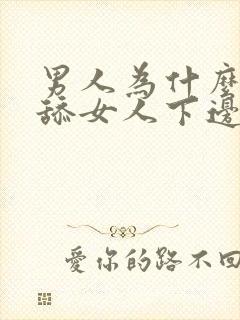 男人為什麼
舔女人下邊
愛你的路不回